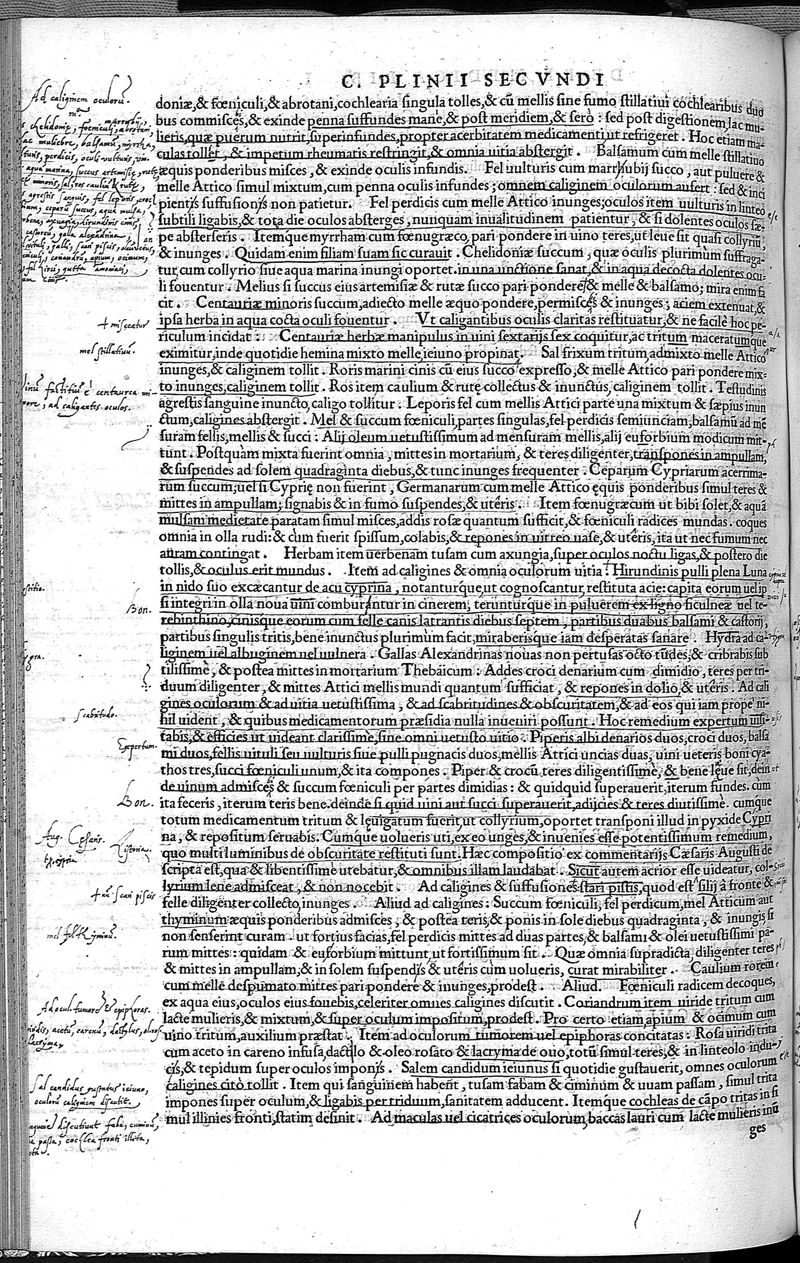 C. PLINII SECVNDI
doniæ,& fœniculi,& abrotani,cochlearia singula tolles,& cū mellis sine fumo stillatiui cochlearibus duo
bus commisces,& exinde penna suffundes mane,& post meridiem,& sero : sed post digestionem,lac mu-
lieris,quæ puerum nutrit,superinfundes,propter acerbitatem medicamenti,ut refrigeret . Hoc etiam ma-
culas tollet , & impetum rheumatis restringit,& omnia uitia abstergit . Balsamum cum melle stillatino
æquis ponderibus misces , & exinde oculis infundis. Fel uulturis cum marrhubij succo , aut puluere &
melle Attico simul mixtum,cum penna oculis infundes ;omnem caliginem oculorum aufert : sed & inci
pientis suffusionis non patietur. Fel perdicis cum melle Attico inunges;oculos item uulturis in linteo
subtili ligabis,& tota die oculos absterges , nunquam inualitudinem patientur , & si dolentes oculos sæ-
pe absterseris . Itemque myrrham cum fœnugræco, pari pondere in uino teres,ut leue sit quasi collyriū,
& inunges . Quidam enim filiam suam sic curauit . Chelidoniæ succum , quæ oculis plurimum suffraga-
tur,cum collyrio siue aqua marina inungi oportet.in una unctione sanat,& in aqua decocta dolentes ocu-
li fouentur . Melius si succus eius artemisiæ & rutæ succo pari pondere & melle & balsamo; mira enim fa
cit . Centauriæ minoris succum,adiecto melle æquo pondere,permisces & inunges ; aciem extenuat,&
ipsa herba in aqua cocta oculi fouentur . Vt caligantibus oculis claritas restituatur,& ne facile hoc pe-
riculum incidat : Centauriæ herbæ manipulus in uini sextarijs sex coquitur,ac tritum maceratumque
eximitur,inde quotidie hemina mixto melle,ieiuno propinat. Sal frixum tritum,admixto melle Attico
inunges,& caliginem tollit . Roris marini cinis cū eius succo expresso,& melle Attico pari pondere mix-
to inunges,caliginem tollit . Ros item caulium & rutę collectus & inunctus, caliginem tollit . Testudinis
agrestis sanguine inuncto,caligo tollitur . Leporis fel cum mellis Attici parte una mixtum & sæpius inun
ctum,caligines abstergit . Mel & succum fœniculi,partes singulas,fel perdicis semiunciam,balsamū ad mē
suram fellis,mellis & succi : Alij oleum uetustissimum ad mensuram mellis,alij euforbium modicum mit-
tunt . Postquàm mixta fuerint omnia , mittes in mortarium, & teres diligenter,transpones in ampullam,
& suspendes ad solem quadraginta diebus,& tunc inunges frequenter . Ceparum Cypriarum acerrima-
rum succum;uel si Cyprię non fuerint , Germanarum cum melle Attico ęquis ponderibus simul teres &
mittes in ampullam; signabis & in fumo suspendes,& utêris. Item fœnugræcum ut bibi solet,& aqua
mulsam medietate paratam simul misces,addis rosæ quantum sufficit,& fœniculi radices mundas. coques
omnia in olla rudi:& cùm fuerit spissum,colabis,& repones in uitreo uase,& utêris,ita ut nec fumum nec
auram contingat . Herbam item uerbenam tusam cum axungia,super oculos noctu ligas,& postero die
tollis,& oculus erit mundus . Item ad caligines & omnia oculorum uitia : Hirundinis pulli plena Luna
in nido suo excæcantur de acu cyprina , notanturque,ut cognoscantur,restituta acie:capita eorum uel ip
si integri in olla noua uini comburantur in cinerem, terunturque in puluerem ex ligno ficulneæ uel te-
rebinthino,cinisque eorum cum felle canis latrantis diebus septem , partibus duabus balsami & castorij,
partibus singulis tritis,bene inunctus plurimum facit,mirаberisque iam desperatas sanare . Hydra ad ca-
liginem uel albuginem uel uulnera . Gallas Alexandrinas nouas non pertusas octo tūdes,& cribrabis sub
tilissimè , & postea mittes in mortarium Thebaicum : Addes croci denarium cum dimidio , teres per tri-
duum diligenter , & mittes Attici mellis mundi quantum sufficiat , & repones in dolio,& utêris : Ad cali
gines oculorum & ad uitia uetustissima , & ad scabritudines & obscuritatem,& ad eos qui iam propè ni-
hil uident , & quibus medicamentorum præsidia nulla inueniri possunt . Hoc remedium expertum
tabis,& efficies ut uideant clarissimè,sine omni uetusto uitio . Piperis albi denarios duos,croci duos,balsa
mi duos,fellis uituli seu uulturis siue pulli pugnacis duos,mellis Attici uncias duas, uini ueteris boni cya-
thos tres,succi fœniculi unum,& ita compones . Piper & crocū teres diligentissimè, & bene leue sit,dein
de uinum admisces & succum fœniculi per partes dimidias : & quidquid superauerit,iterum fundes. cùm
ita feceris , iterum teris bene.deinde si quid uini aut succi superauerit,adijcies & teres diutissimè. cumque
totum medicamentum tritum & leuigatum fuerit,ut collyrium,oportet transponi illud in pyxide Cypri
na , & repositum seruabis. Cumque uolueris uti,ex eo unges,& inuenies esse potentissimum remedium,
quo multi luminibus de obscuritate restituti sunt.Hæc compositio ex commentarijs Cæsaris Augusti de
scripta est,qua & libentissimè utebatur,& omnibus illam laudabat . Sicut autem acrior esse uideatur, col-
lyrium lene admisceat , & non nocebit . Ad caligines & suffusiones stari piscis,quod est silij à fronte &
felle diligenter collecto,inunges . Aliud ad caligines : Succum fœniculi, fel perdicum,mel Atticum aut
thyminum æquis ponderibus admisces , & postea teris,& ponis in sole diebus quadraginta , & inungis si
non senserint curam . ut fortius facias,fel perdicis mittes ad duas partes,& balsami & olei uetustissimi pa-
rum mittes : quidam & euforbium mittunt,ut fortissimum sit . Quæ omnia supradicta, diligenter teres
& mittes in ampullam,& in solem suspendis & utêris cùm uolueris, curat mirabiliter . Caulium rorem
cum melle despumato mittes pari pondere & inunges,prodest . Aliud. Fœniculi radicem decoques,
ex aqua eius,oculos eius fouebis,celeriter omnes caligines discutit . Coriandrum item uiride tritum cum
lacte mulieris,& mixtum,& super oculum impositum,prodest . Pro certo etiam,apium & ocimum cum
uino tritum,auxilium præstat . Item ad oculorum tumorem uel epiphoras concitatas : Rosa uiridi trita
cum aceto in careno infusa,dactilo & oleo rosato & lacryma de ouo,totū simul teres,& in linteolo indu-
cis,& tepidum super oculos imponis . Salem candidum ieiunus si quotidie gustauerit, omnes oculorum
caligines citò tollit . Item qui sanguinem habent , tusam fabam & ciminum & uuam passam , simul trita
impones super oculum,& ligabis per triduum,sanitatem adducent . Itemque cochleas de cāpo tritas in si
mul illinies fronti,statim desinit . Ad maculas uel cicatrices oculorum,baccas lauri cum lacte mulieris inū
ges
Ad caliginem oculorū.
+ misceatur
mel stillatiuū.
Bon.
Scabritudo.
Expertum.
Bon.
Aug. Cæsaris.
Sal candidus gustatus ieiuno,
oculorū caliginem discutit.